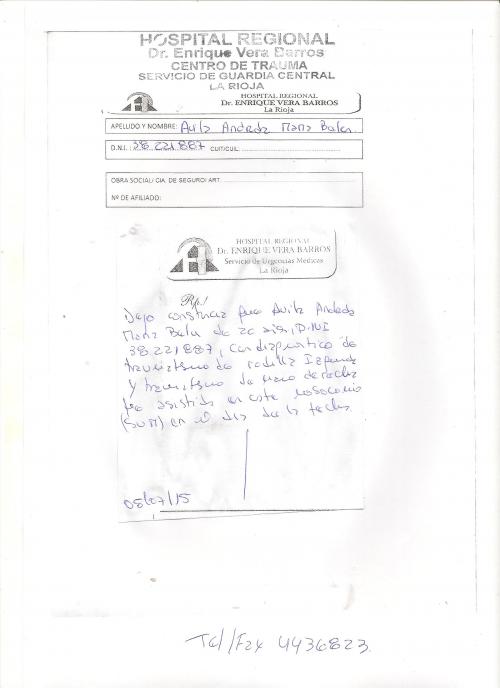 HOSPITAL REGIONAL
Dr. Enrique Vera Barros
CENTRO DE TRAUMA
SERVICIO DE GUARDIA CENTRAL
LA RIOJA
HOSPITAL REGIONAL
Dr. ENRIQUE VERA BARROS
La Rioja
APELLIDO Y NOMBRE: Avila Andrada Maria Belen
D.N.I. 38.221887 CUIT/CUIL:
OBRA SOCIAL/ CIA. DE SEGURO/ ART
Nº DE AFILIADO:
HOSPITAL REGIONAL
Dr. ENRIQUE VERA BARROS
Servicio de Urgencias Médicas
La Rioja
Rp./
Dejo constancia que Avila Andrada
Maria Belen de 20 años, D.N.I
38.221887, con diagnostico de
traumatismo de rodilla Izquierda
y traumatismo de mano derecha
fue asistida en este nosocomio
(SUM) en el dia de la fecha.
08/07/15
Tel/Fax 4436823